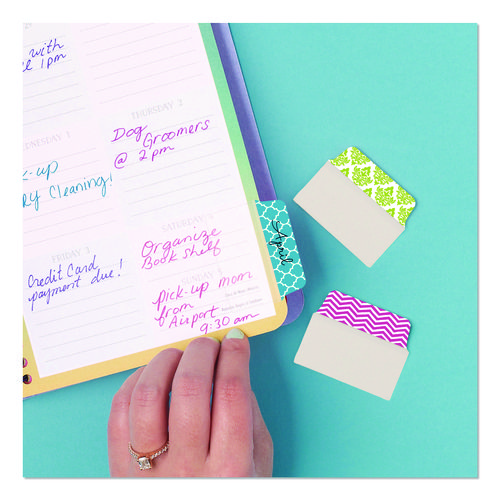 with
1pm
WEDNESDAY 1
pick-up
Dry Cleaning!
THURSDAY 2
Dog
Groomers
@ 2pm
FRIDAY 3
Credit Card
payment due!
SATURDAY
Organize
Book Shelf
SUNDAY 5
pick-up mom
from
Airport
9:30 am
April